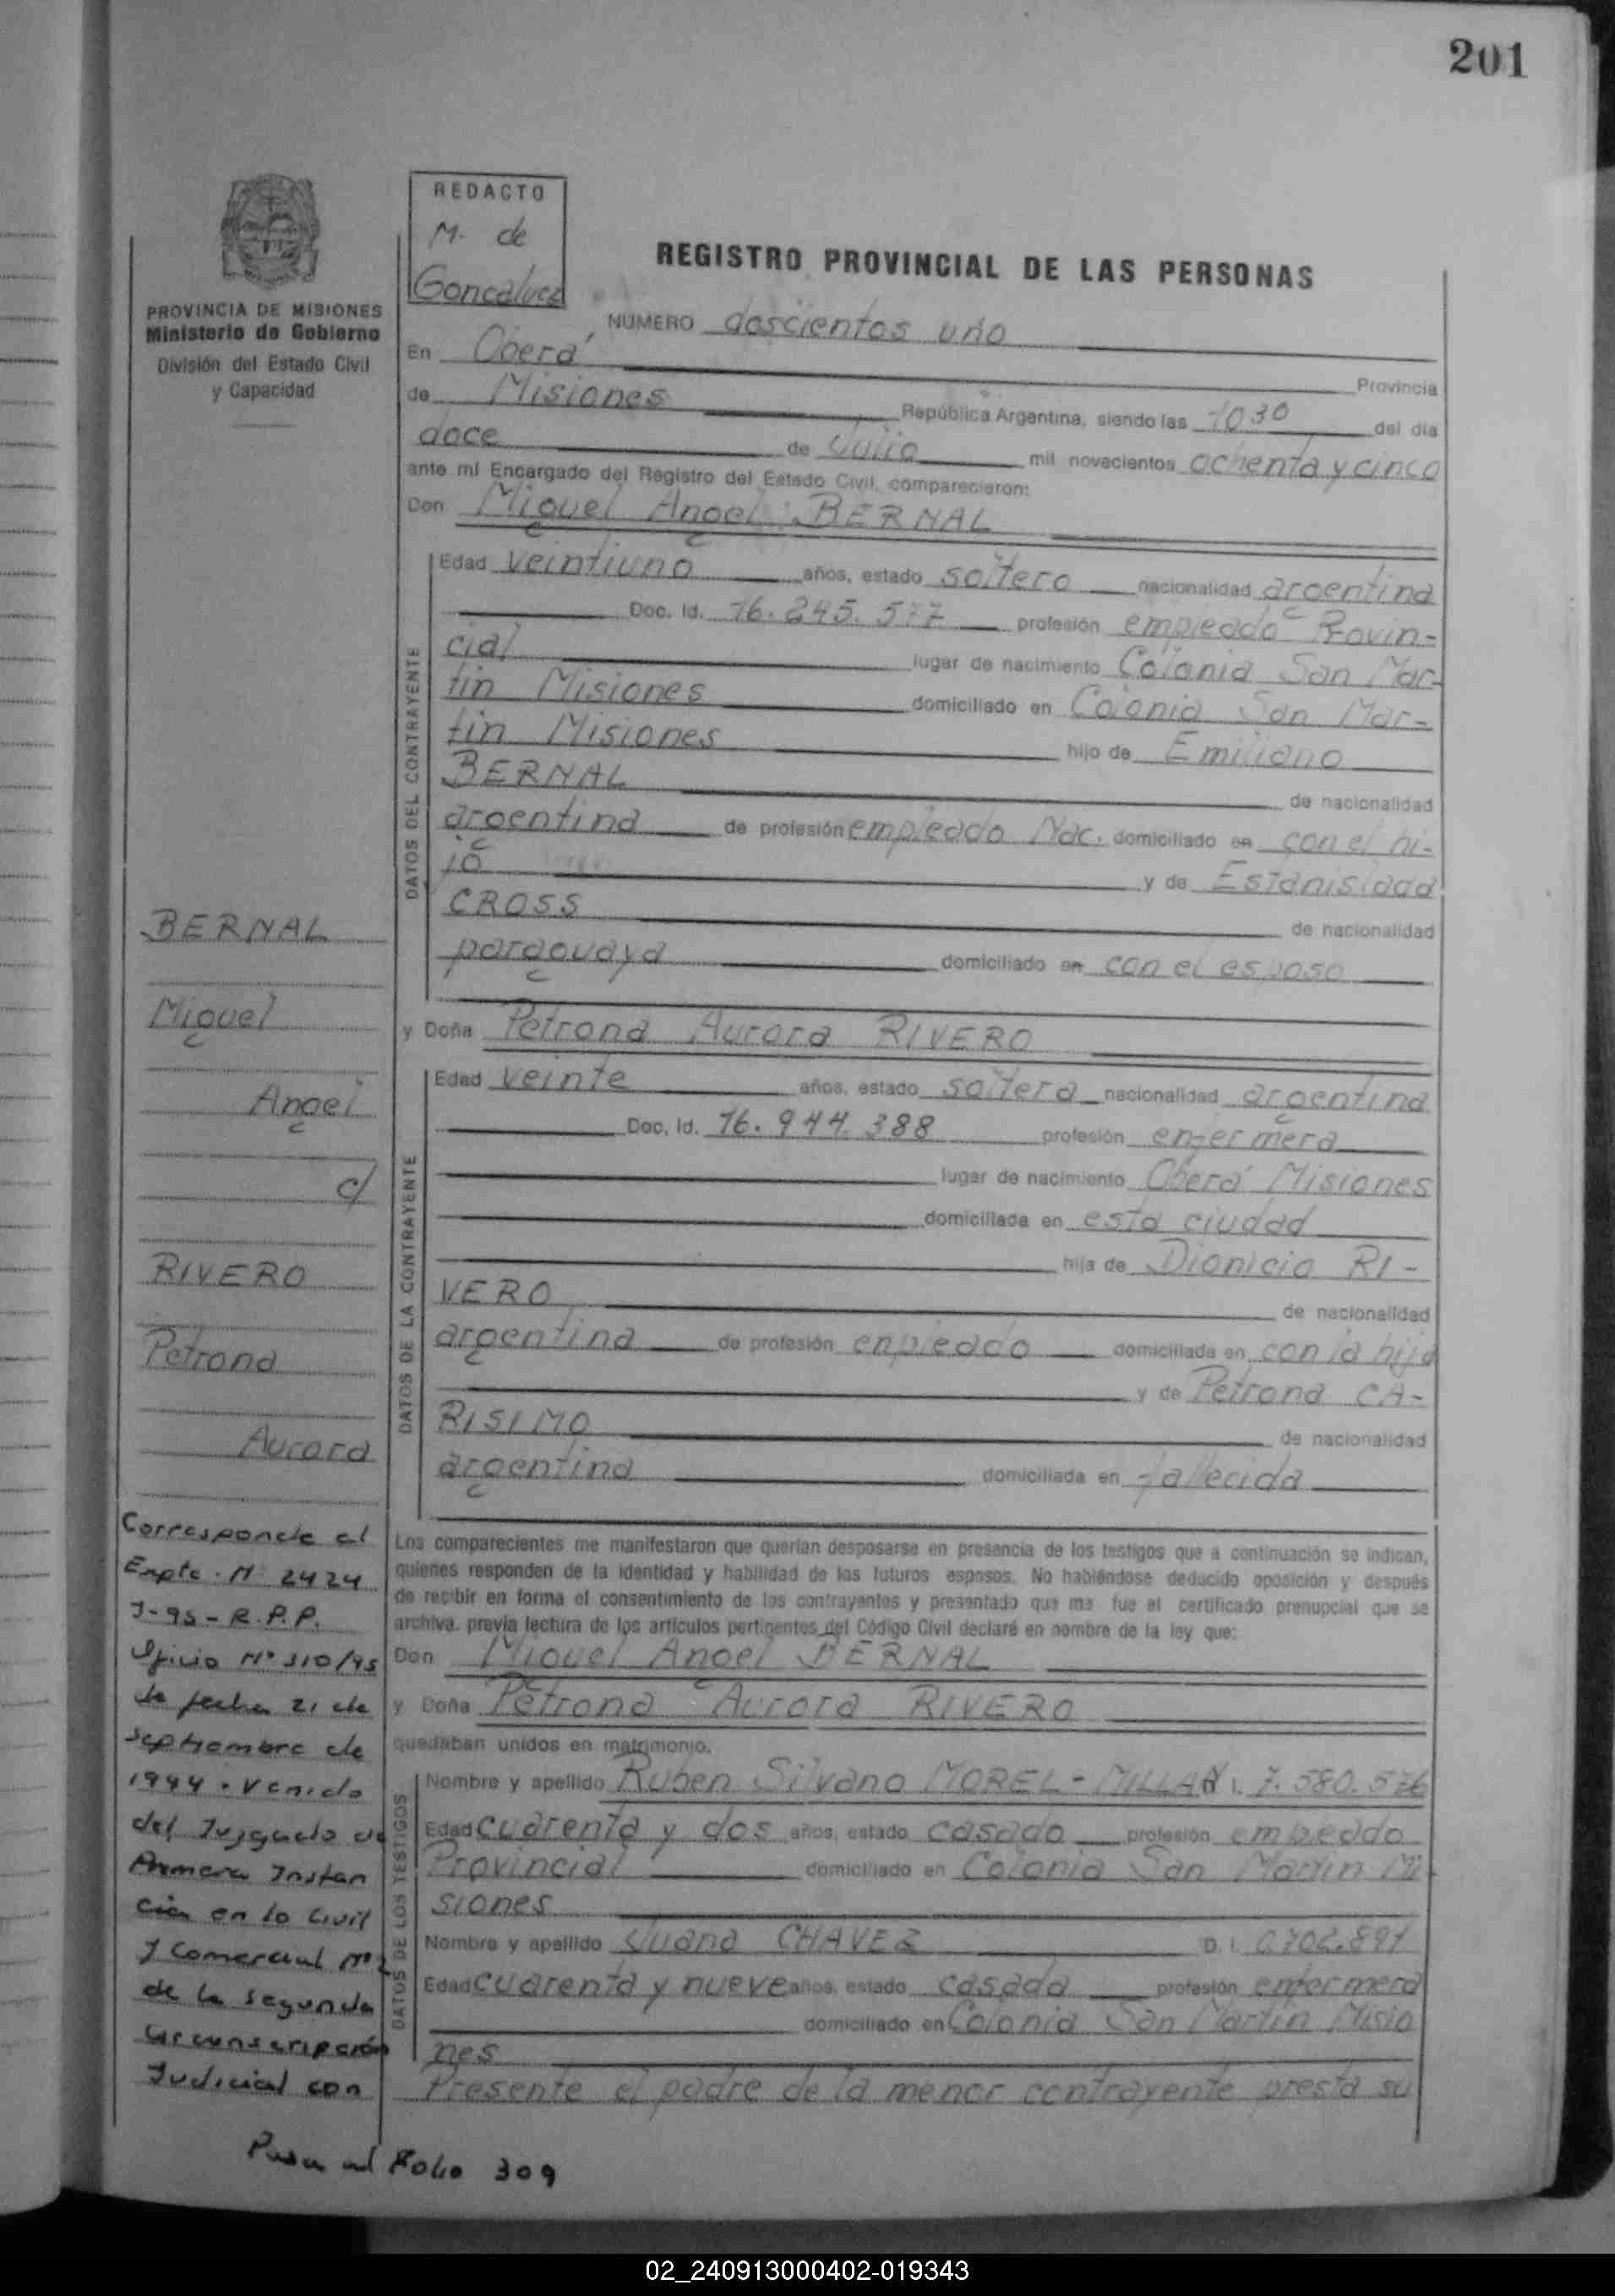 201
REDACTO
M. de
Goncalvez
PROVINCIA DE MISIONES
Ministerio de Gobierno
División del Estado Civil
y Capacidad
REGISTRO PROVINCIAL DE LAS PERSONAS
NUMERO doscientos uno
En Oberá Provincia
de Misiones República Argentina, siendo las 1030 del día
doce de Julio mil novecientos ochenta y cinco
ante mí Encargado del Registro del Estado Civil, comparecieron:
Don Miguel Angel BERNAL
DATOS DEL CONTRAYENTE
Edad veintiuno años, estado soltero nacionalidad argentina
Doc. Id. 16.245.577 profesión empleado Provin-
cial lugar de nacimiento Colonia San Mar-
tin Misiones domiciliado en Colonia San Mar-
tin Misiones hijo de Emiliano
BERNAL de nacionalidad
argentina de profesión empleado Nac. domiciliado en con el hi-
jo y de Estanislada
CROSS de nacionalidad
paraguaya domiciliado en con el esposo
y Doña Petrona Aurora RIVERO
DATOS DE LA CONTRAYENTE
Edad veinte años, estado soltera nacionalidad argentina
Doc. Id. 16.944.388 profesión enfermera
lugar de nacimiento Oberá Misiones
domiciliada en esta ciudad
hija de Dionicio RI-
VERO de nacionalidad
argentina de profesión enpleado domiciliada en con la hija
y de Petrona CA-
RISIMO de nacionalidad
argentina domiciliada en fallecida
Los comparecientes me manifestaron que querían desposarse en presencia de los testigos que a continuación se indican,
quienes responden de la identidad y habilidad de los futuros esposos. No habiéndose deducido oposición y después
de recibir en forma el consentimiento de los contrayentes y presentado que me fue el certificado prenupcial que se
archiva, previa lectura de los artículos pertinentes del Código Civil declaré en nombre de la ley que:
Don Miguel Angel BERNAL
y Doña Petrona Aurora RIVERO
quedaban unidos en matrimonio.
DATOS DE LOS TESTIGOS
Nombre y apellido Ruben Silvano MOREL-MILLAN I. 7.580.576
Edad cuarenta y dos años, estado casado profesión empeado
Provincial domiciliado en Colonia San Martin Mi-
siones
Nombre y apellido Juana CHAVEZ D. I. 0.702.891
Edad cuarenta y nueve años, estado casada profesión enfermera
domiciliado en Colonia San Martin Misio
nes
Presente el padre de la menor contrayente presta su
BERNAL
Miguel
Angel
c/
RIVERO
Petrona
Aurora
Corresponde al
Expte. Nº 2424
J-95-R.P.P.
Oficio Nº 310/95
de fecha 21 de
septiembre de
1994. Venido
del Juzgado de
Primera Instan
cia en lo Civil
y Comercial Nº 2
de la segunda
circunscripción
Judicial con
Pasa al Folio 309
02_240913000402-019343